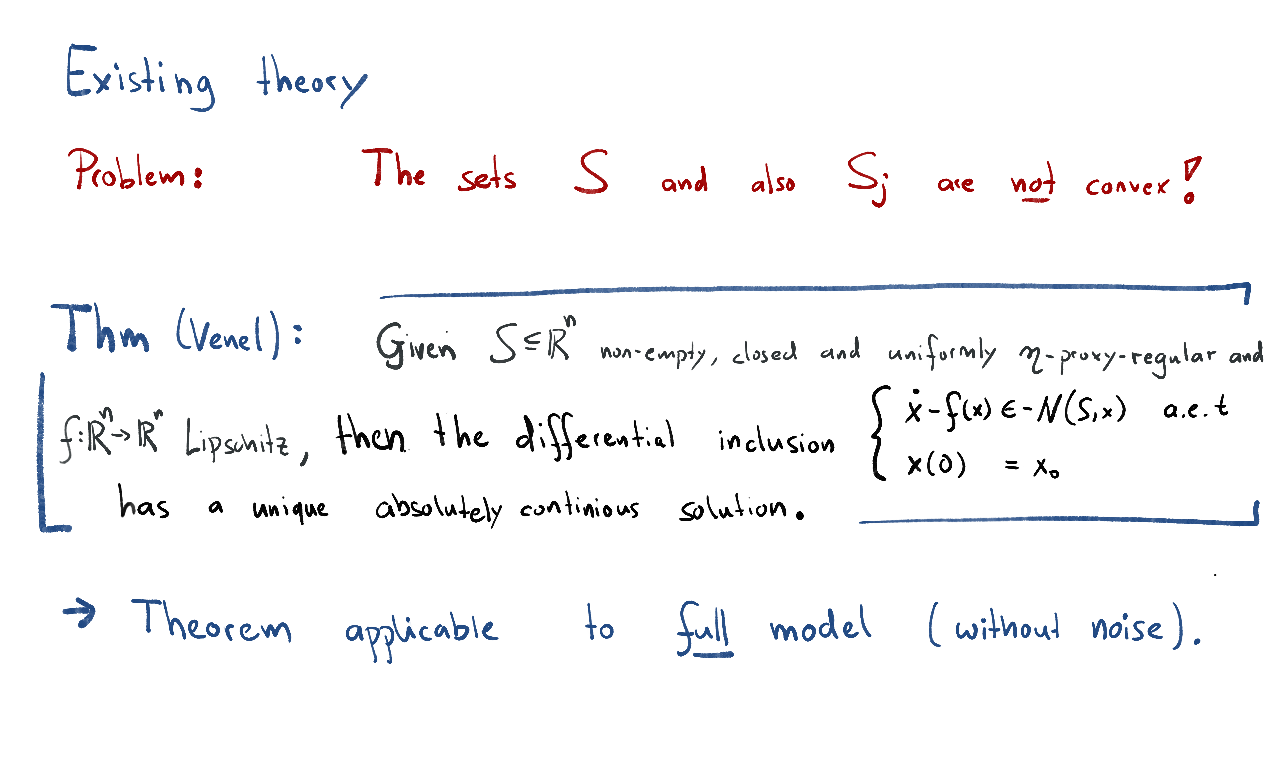 Existing theory
Problem: The sets S and also Sj are not convex!
Thm (Venel): Given S ⊆ ℝⁿ non-empty, closed and uniformly η-proxy-regular and
f: ℝⁿ → ℝⁿ Lipschitz, then the differential inclusion { ẋ - f(x) ∈ -N(S,x) a.e. t
x(0) = x₀
has a unique absolutely continious solution.
→ Theorem applicable to full model (without noise).